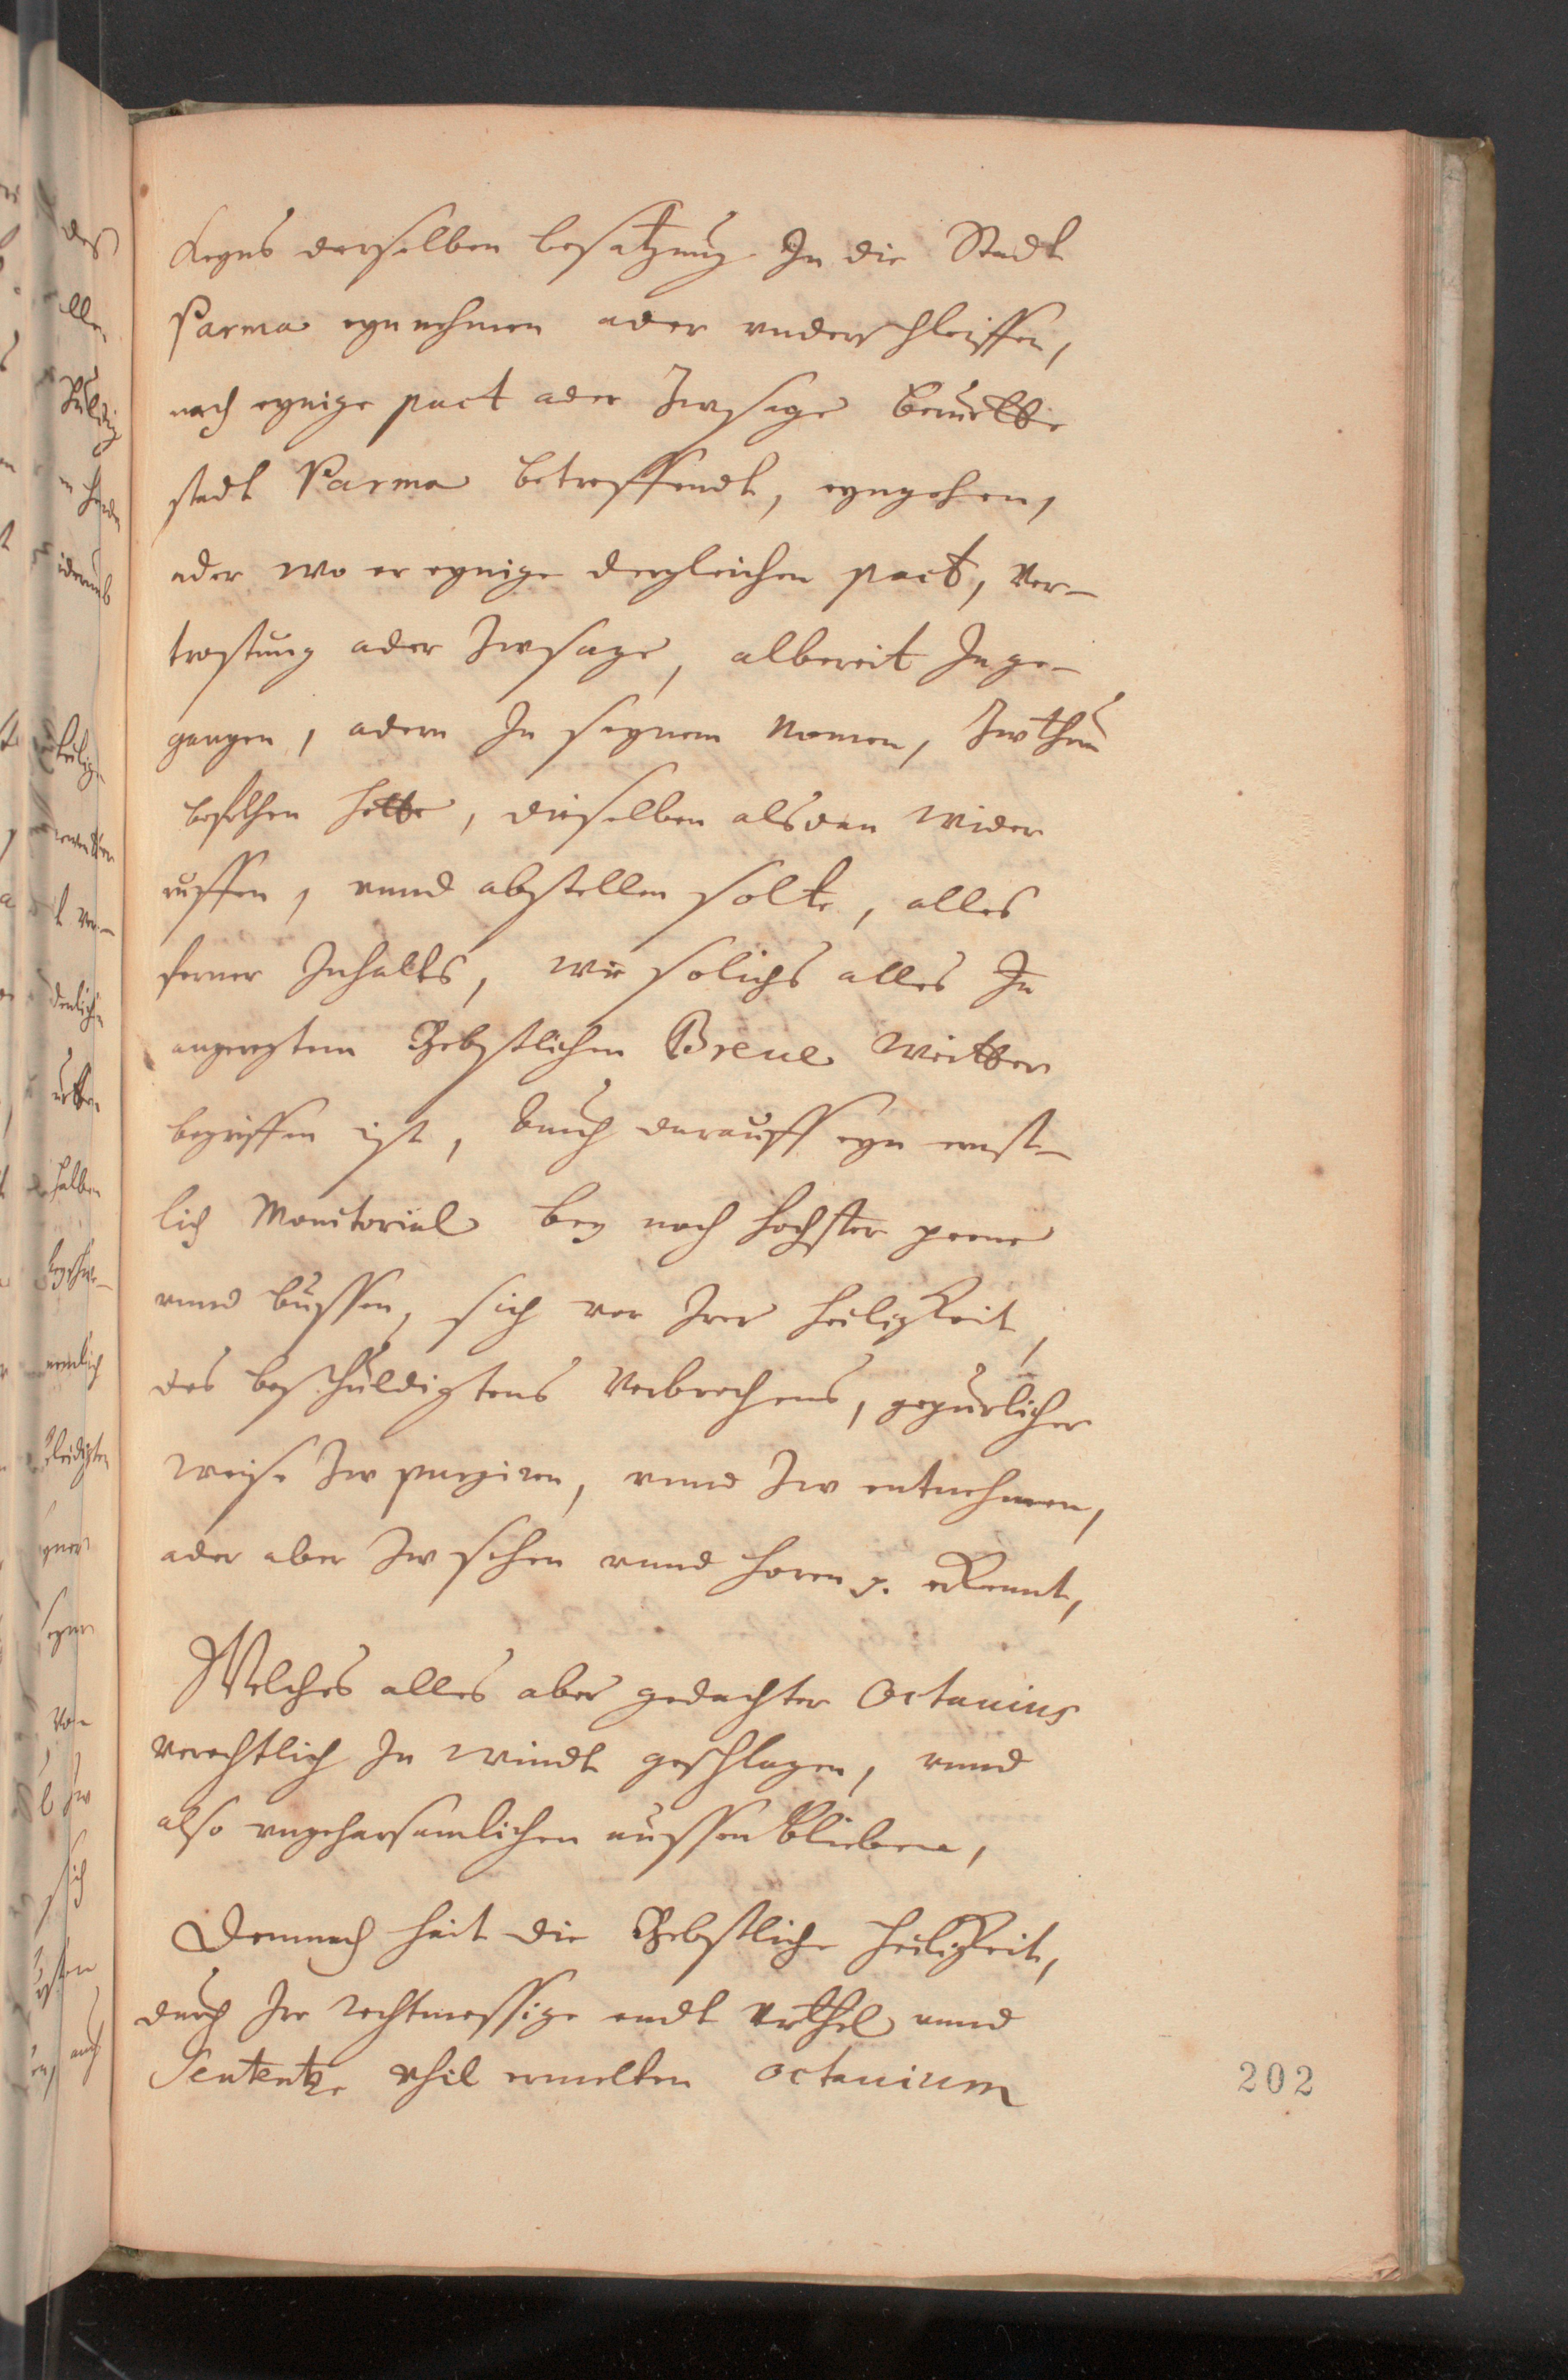 Keyns derselben besatzung In die Stadt
Parma eynnehmen ader underschleiffen,
noch eynige pact ader Zwsage berurtte
stadt Parma betreffendt, eyngehen,
ader wo er eynige dergleichen pact, Ver-
trostung ader Zwsage, albereit Inge-
gangen, adern In seynem Namen, Zwthun
befolhen hette, dieselben alsdan wider
ruffen, unnd abstellen solte, alles
ferner Inhalts, wie solichs alles In
angeregtem Bebstlichem Breue Weitter
begriffen ist, Auch darauff eyn ernst-
lich Monitorial bey noch hochster peene
unnd bussen, sich vor Irer heiligkeit,
des beschuldigtens Verbrechens, gepurlicher
weise Zw purgiren, unnd Zw entnehmen,
ader aber Zw sehen unnd horen p. erkennt,
Welches alles aber gedachter Octauius
verechtlich In Windt geschlagen, unnd
also ungehorsamlichen aussen blieben,
Demnach hait die Bebstliche heiligkeit,
durch Ire rechtmessige endt Urthel unnd
Sententze vhil ermelten Octauium
202